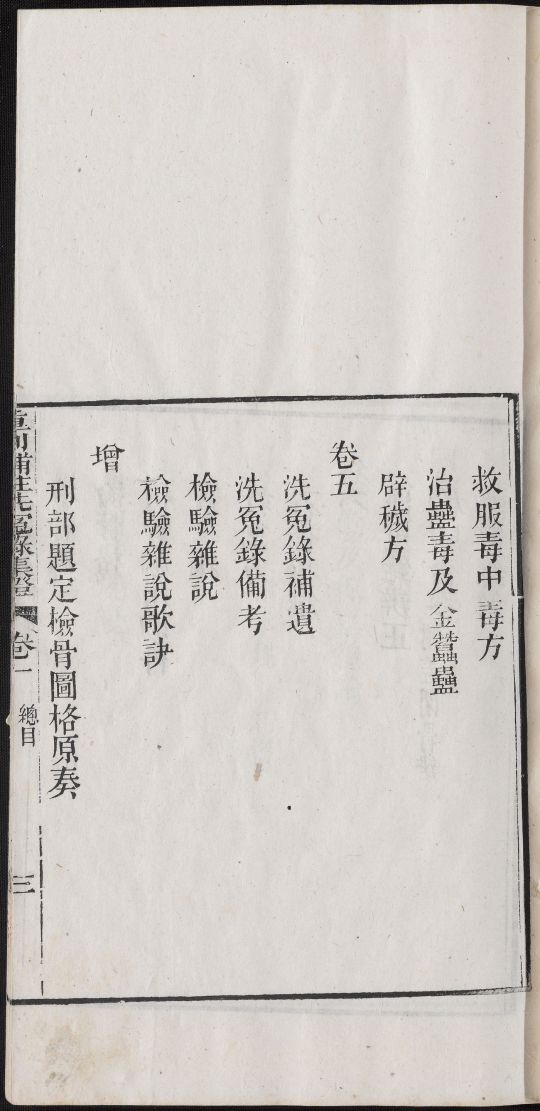 救服毒中毒方
治蠱毒及金蠶蠱
辟穢方
卷五
洗冤錄補遺
洗冤錄備考
檢驗雜說
檢驗雜說歌訣
增
刑部題定檢骨圖格原奏
重刊補註洗冤錄集證 卷一 總目 三